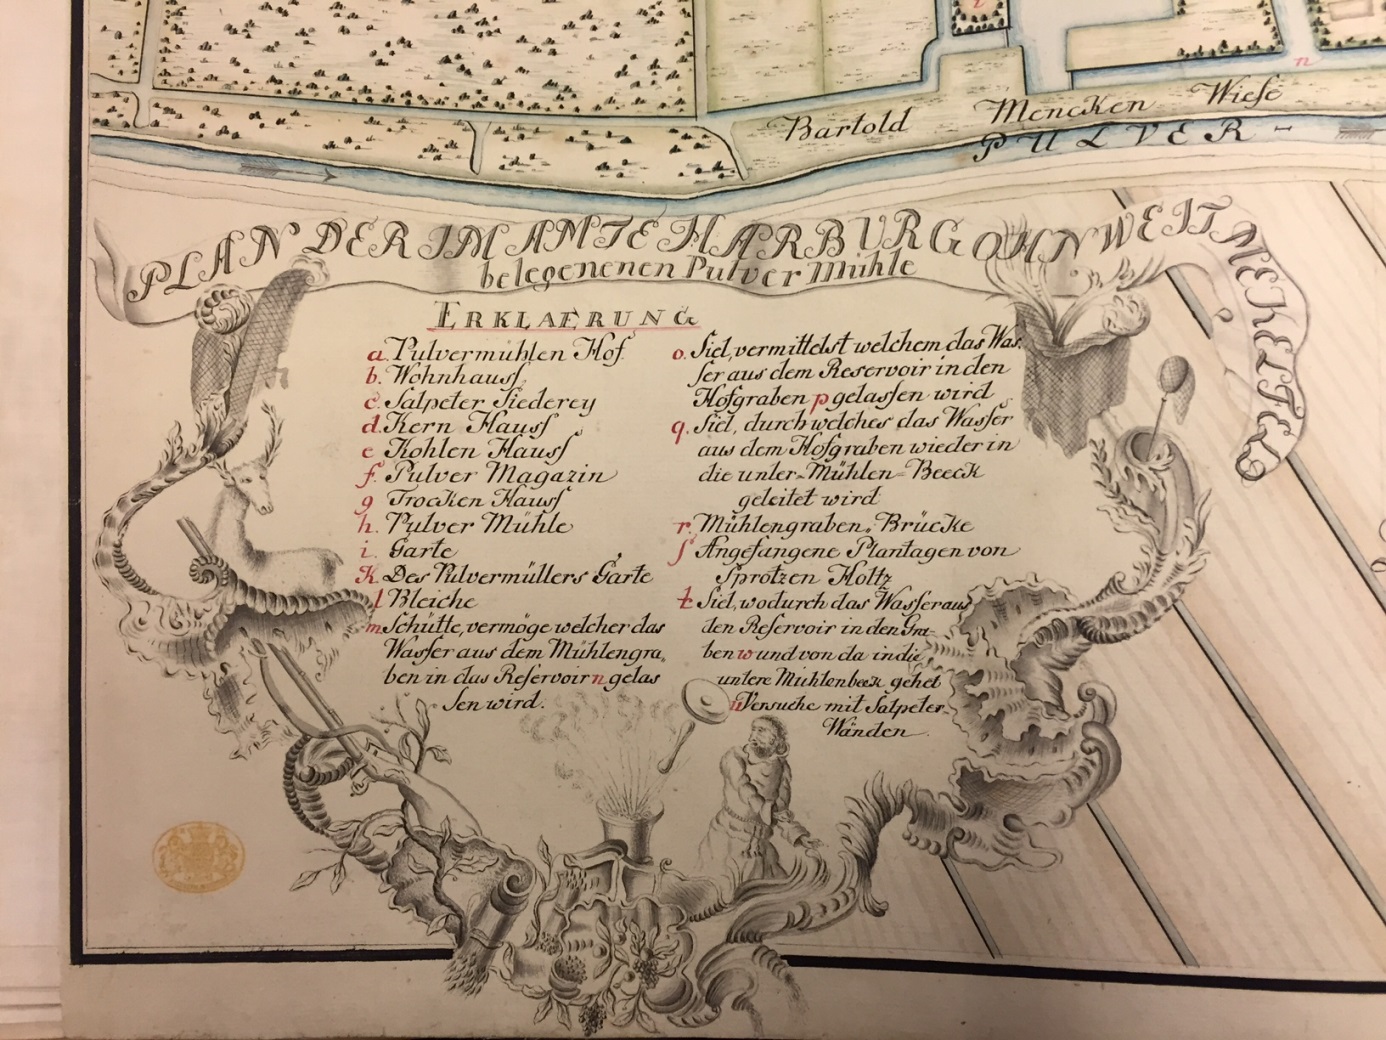 i
n
Bartold Mencken Wiese
PULVER -
PLAN DER IM AMTE HARBURG OHNWEIT MEKELFELD
belegenenen Pulver Mühle
ERKLAERUNG
a. Pulvermuhlen Hof.
b. Wohnhauss
c. Salpeter Siederey
d. Kern Hauss
e Kohlen Hauss
f. Pulver Magazin
g Trocken Hauss
h. Pulver Mühle
i. Garte
K. Des Pulvermüllers Garte
l Bleiche
m Schütte, vermöge welcher das
Wasser aus dem Mühlengra,
ben in das Reservoir n gelas
sen wird.
o. Siel, vermittelst welchem das Was,
ser aus dem Reservoir in den
Hofgraben p gelassen wird
q. Siel, durch welches das Wasser
aus dem Hofgraben wieder in
die unter-Mühlen-Beeck
geleitet wird
r. Mühlengraben-Brücke
s Angefangene Plantagen von
Sprötzen Holtz
t Siel, wodurch das Wasser aus
den Reservoir in den Gra-
ben w und von da in die
untere Mühlenbeek gehet
u Versuche mit Salpeter-
Wänden.